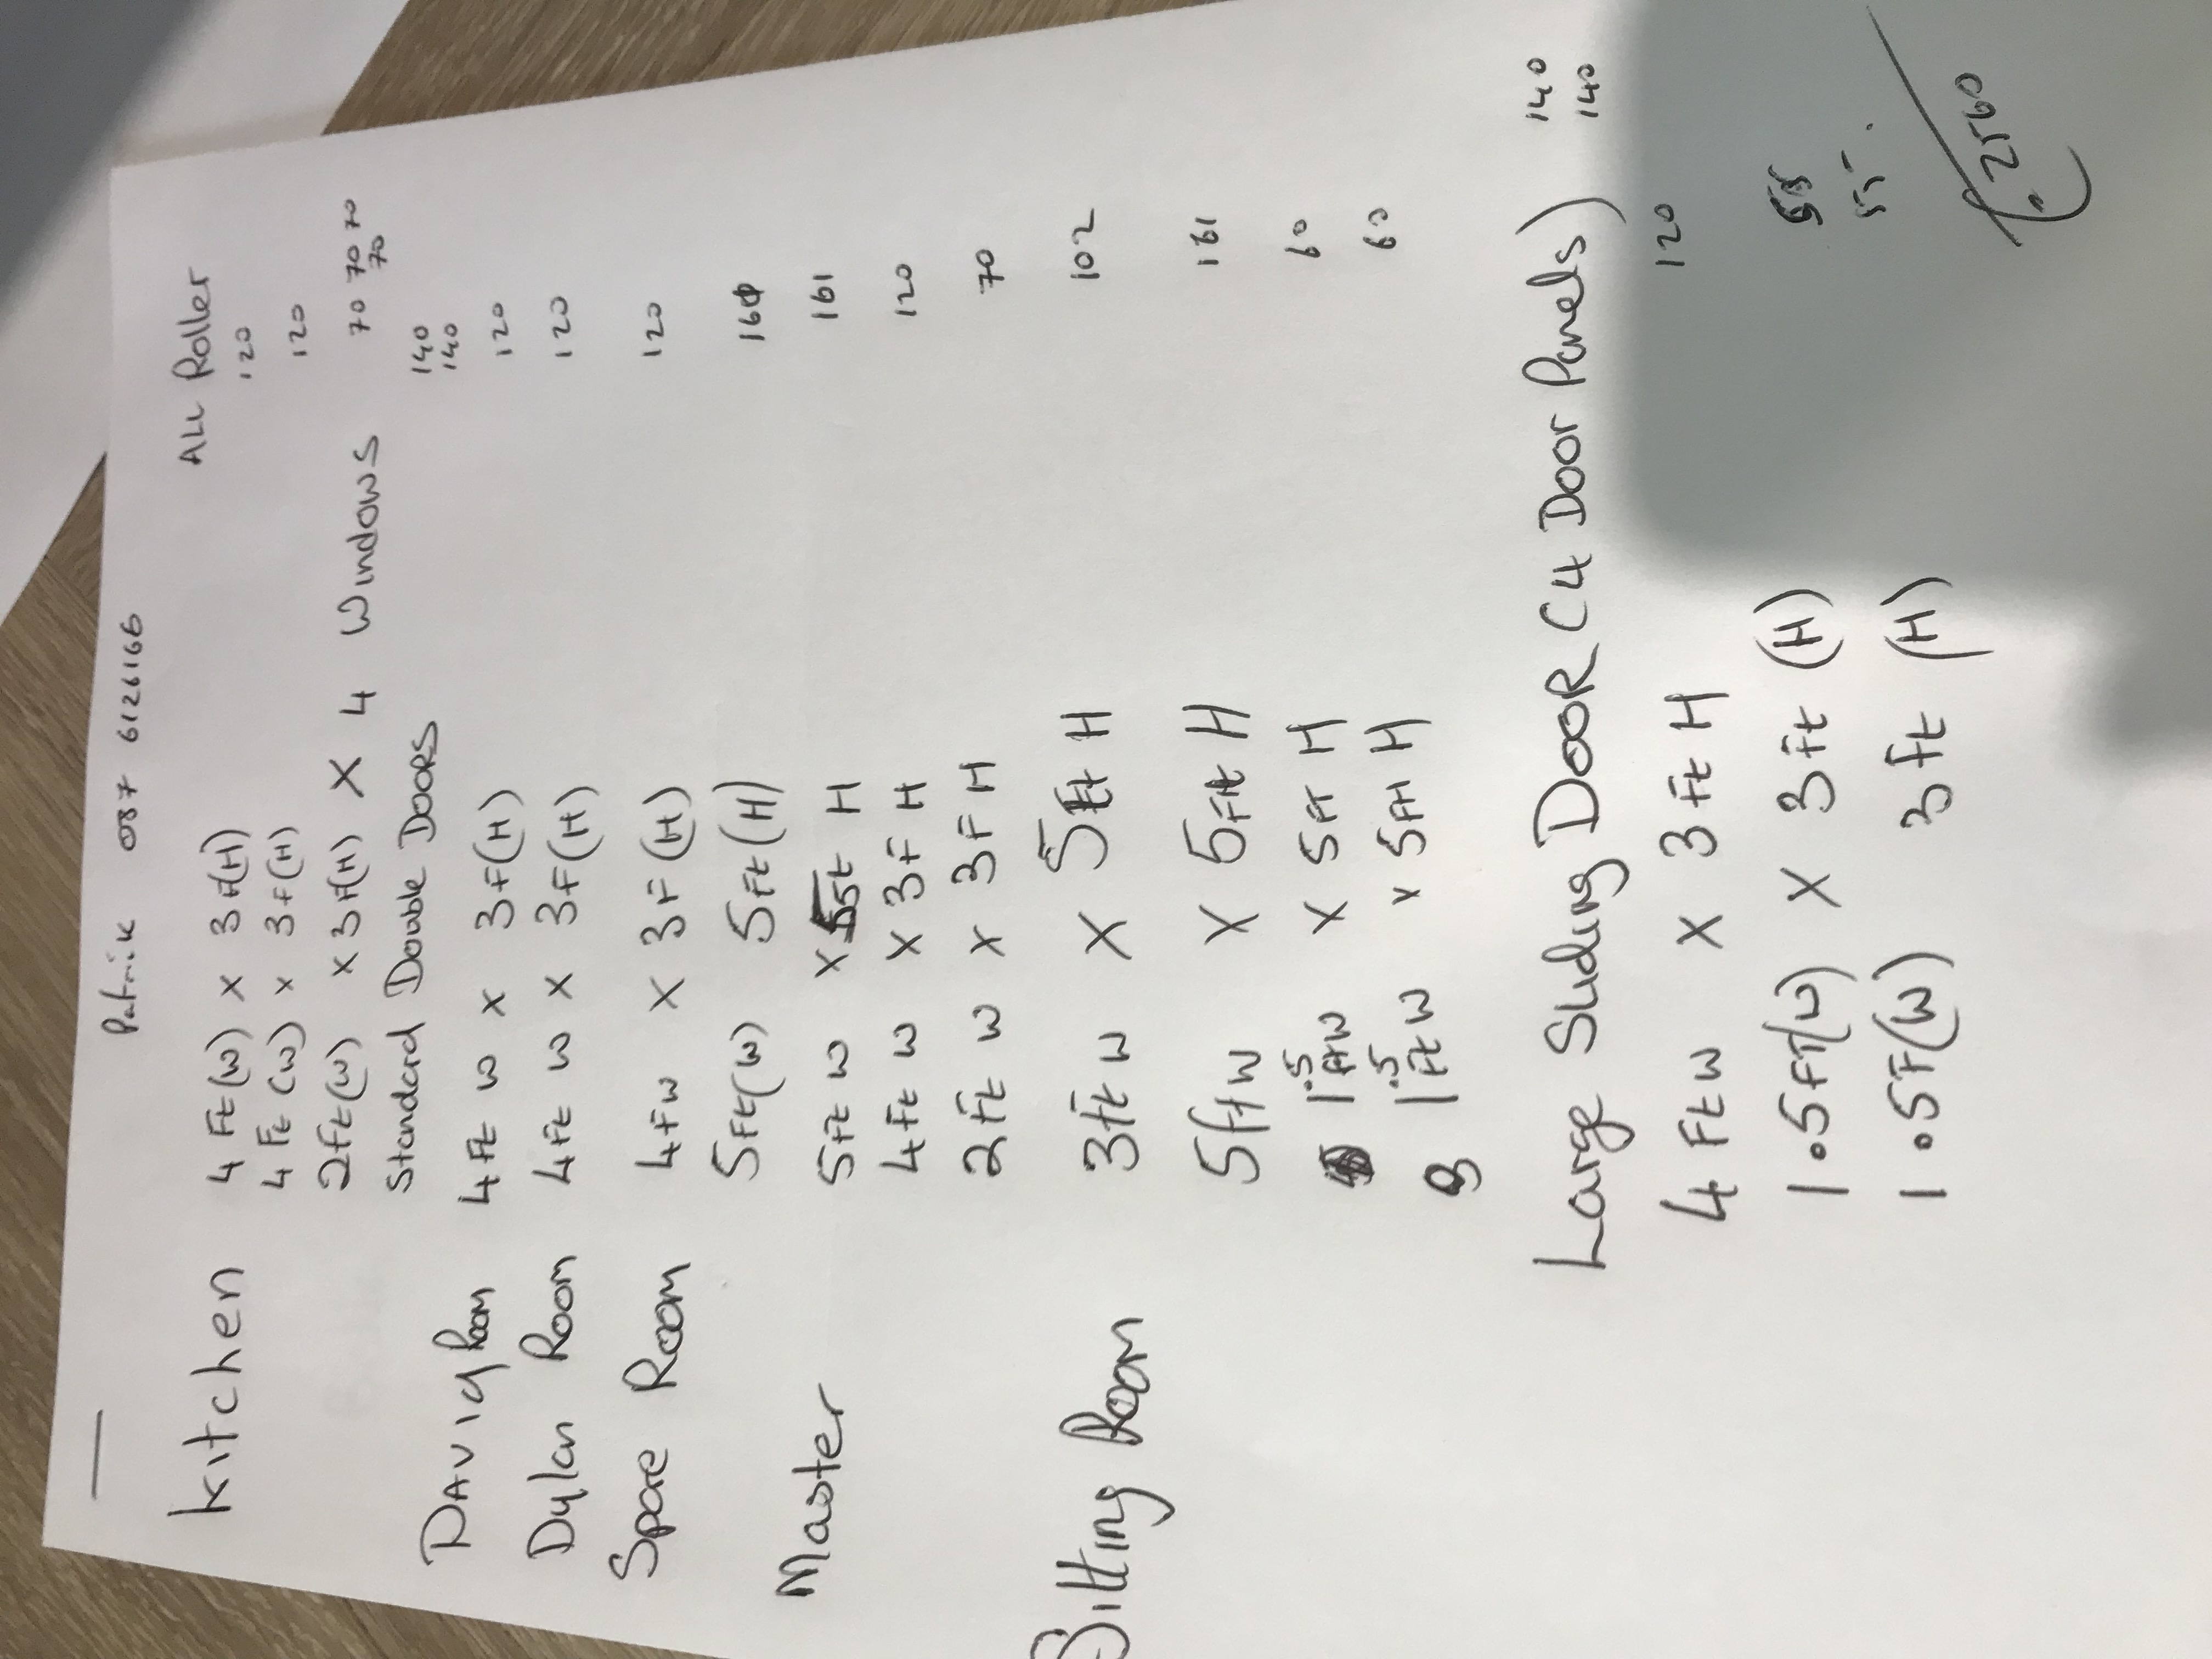 Patrick 087 6126166
ALL Roller
Kitchen 4 Ft(w) x 3F(H) 120
4 Ft (w) x 3F(H) 120
2Ft(w) x 3F(H) X 4 Windows 70 70 70 70
Standard Double Doors 140 140
David Room 4Ft w x 3F(H) 120
Dylan Room 4Ft w x 3F(H) 120
Spare Room 4Fw X 3F(H) 120
5Ft(w) 5Ft(H) 161
Master 5Ft w x 5Ft H 161
4Ft w x 3F H 120
2Ft w x 3F H 70
Sitting Room 3ft w X 5Ft H 102
5ftw X 5Ft H 161
1.5 Ftw X 5Ft H 60
1.5 Ft w x 5Ft H 60
Large Sliding DOOR (4 Door Panels) 140 140
4 Ft w X 3 Ft H 120
1.5FT(w) X 3Ft (H) 55
1.5F(w) 3Ft (H) 55
2560